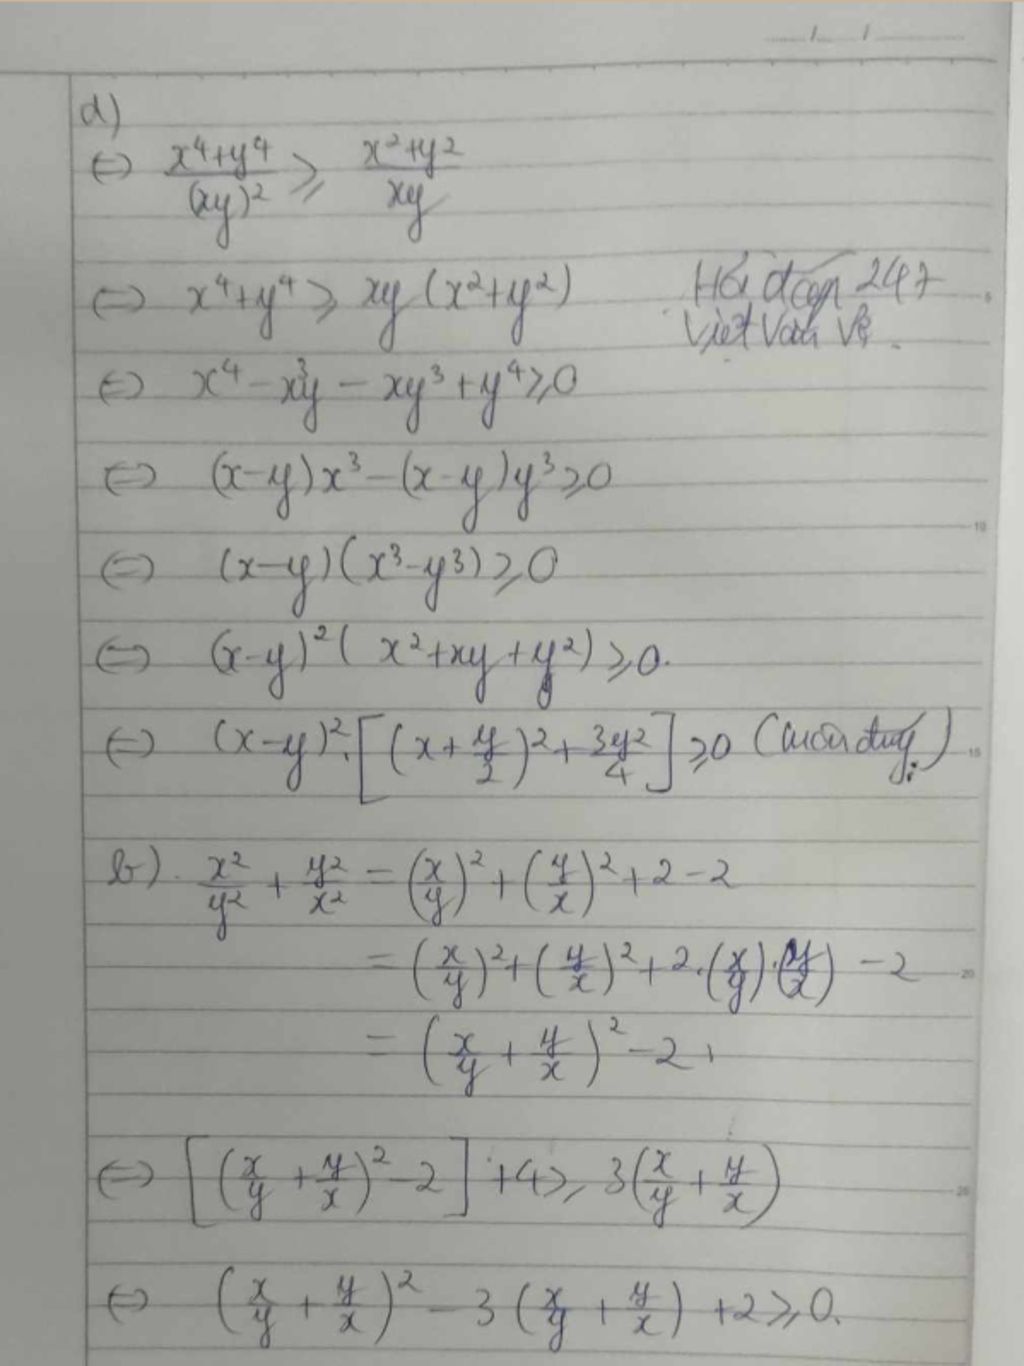 d)
⇔ (x⁴+y⁴)/(xy)² ≥ (x²+y²)/(xy)
⇔ x⁴+y⁴ ≥ xy(x²+y²)
Hỏi đáp 247
Viet Van Vo.
⇔ x⁴ - x³y - xy³ + y⁴ ≥ 0
⇔ (x-y)x³ - (x-y)y³ ≥ 0
⇔ (x-y)(x³-y³) ≥ 0
⇔ (x-y)²(x²+xy+y²) ≥ 0.
⇔ (x-y)².[(x+y/2)² + 3y²/4] ≥ 0 (luôn đúng)
b). x²/y² + y²/x² = (x/y)² + (y/x)² + 2 - 2
= (x/y)² + (y/x)² + 2.(x/y).(y/x) - 2
= (x/y + y/x)² - 2,
⇔ [(x/y + y/x)² - 2] + 4 ≥ 3(x/y + y/x)
⇔ (x/y + y/x)² - 3(x/y + y/x) + 2 ≥ 0.